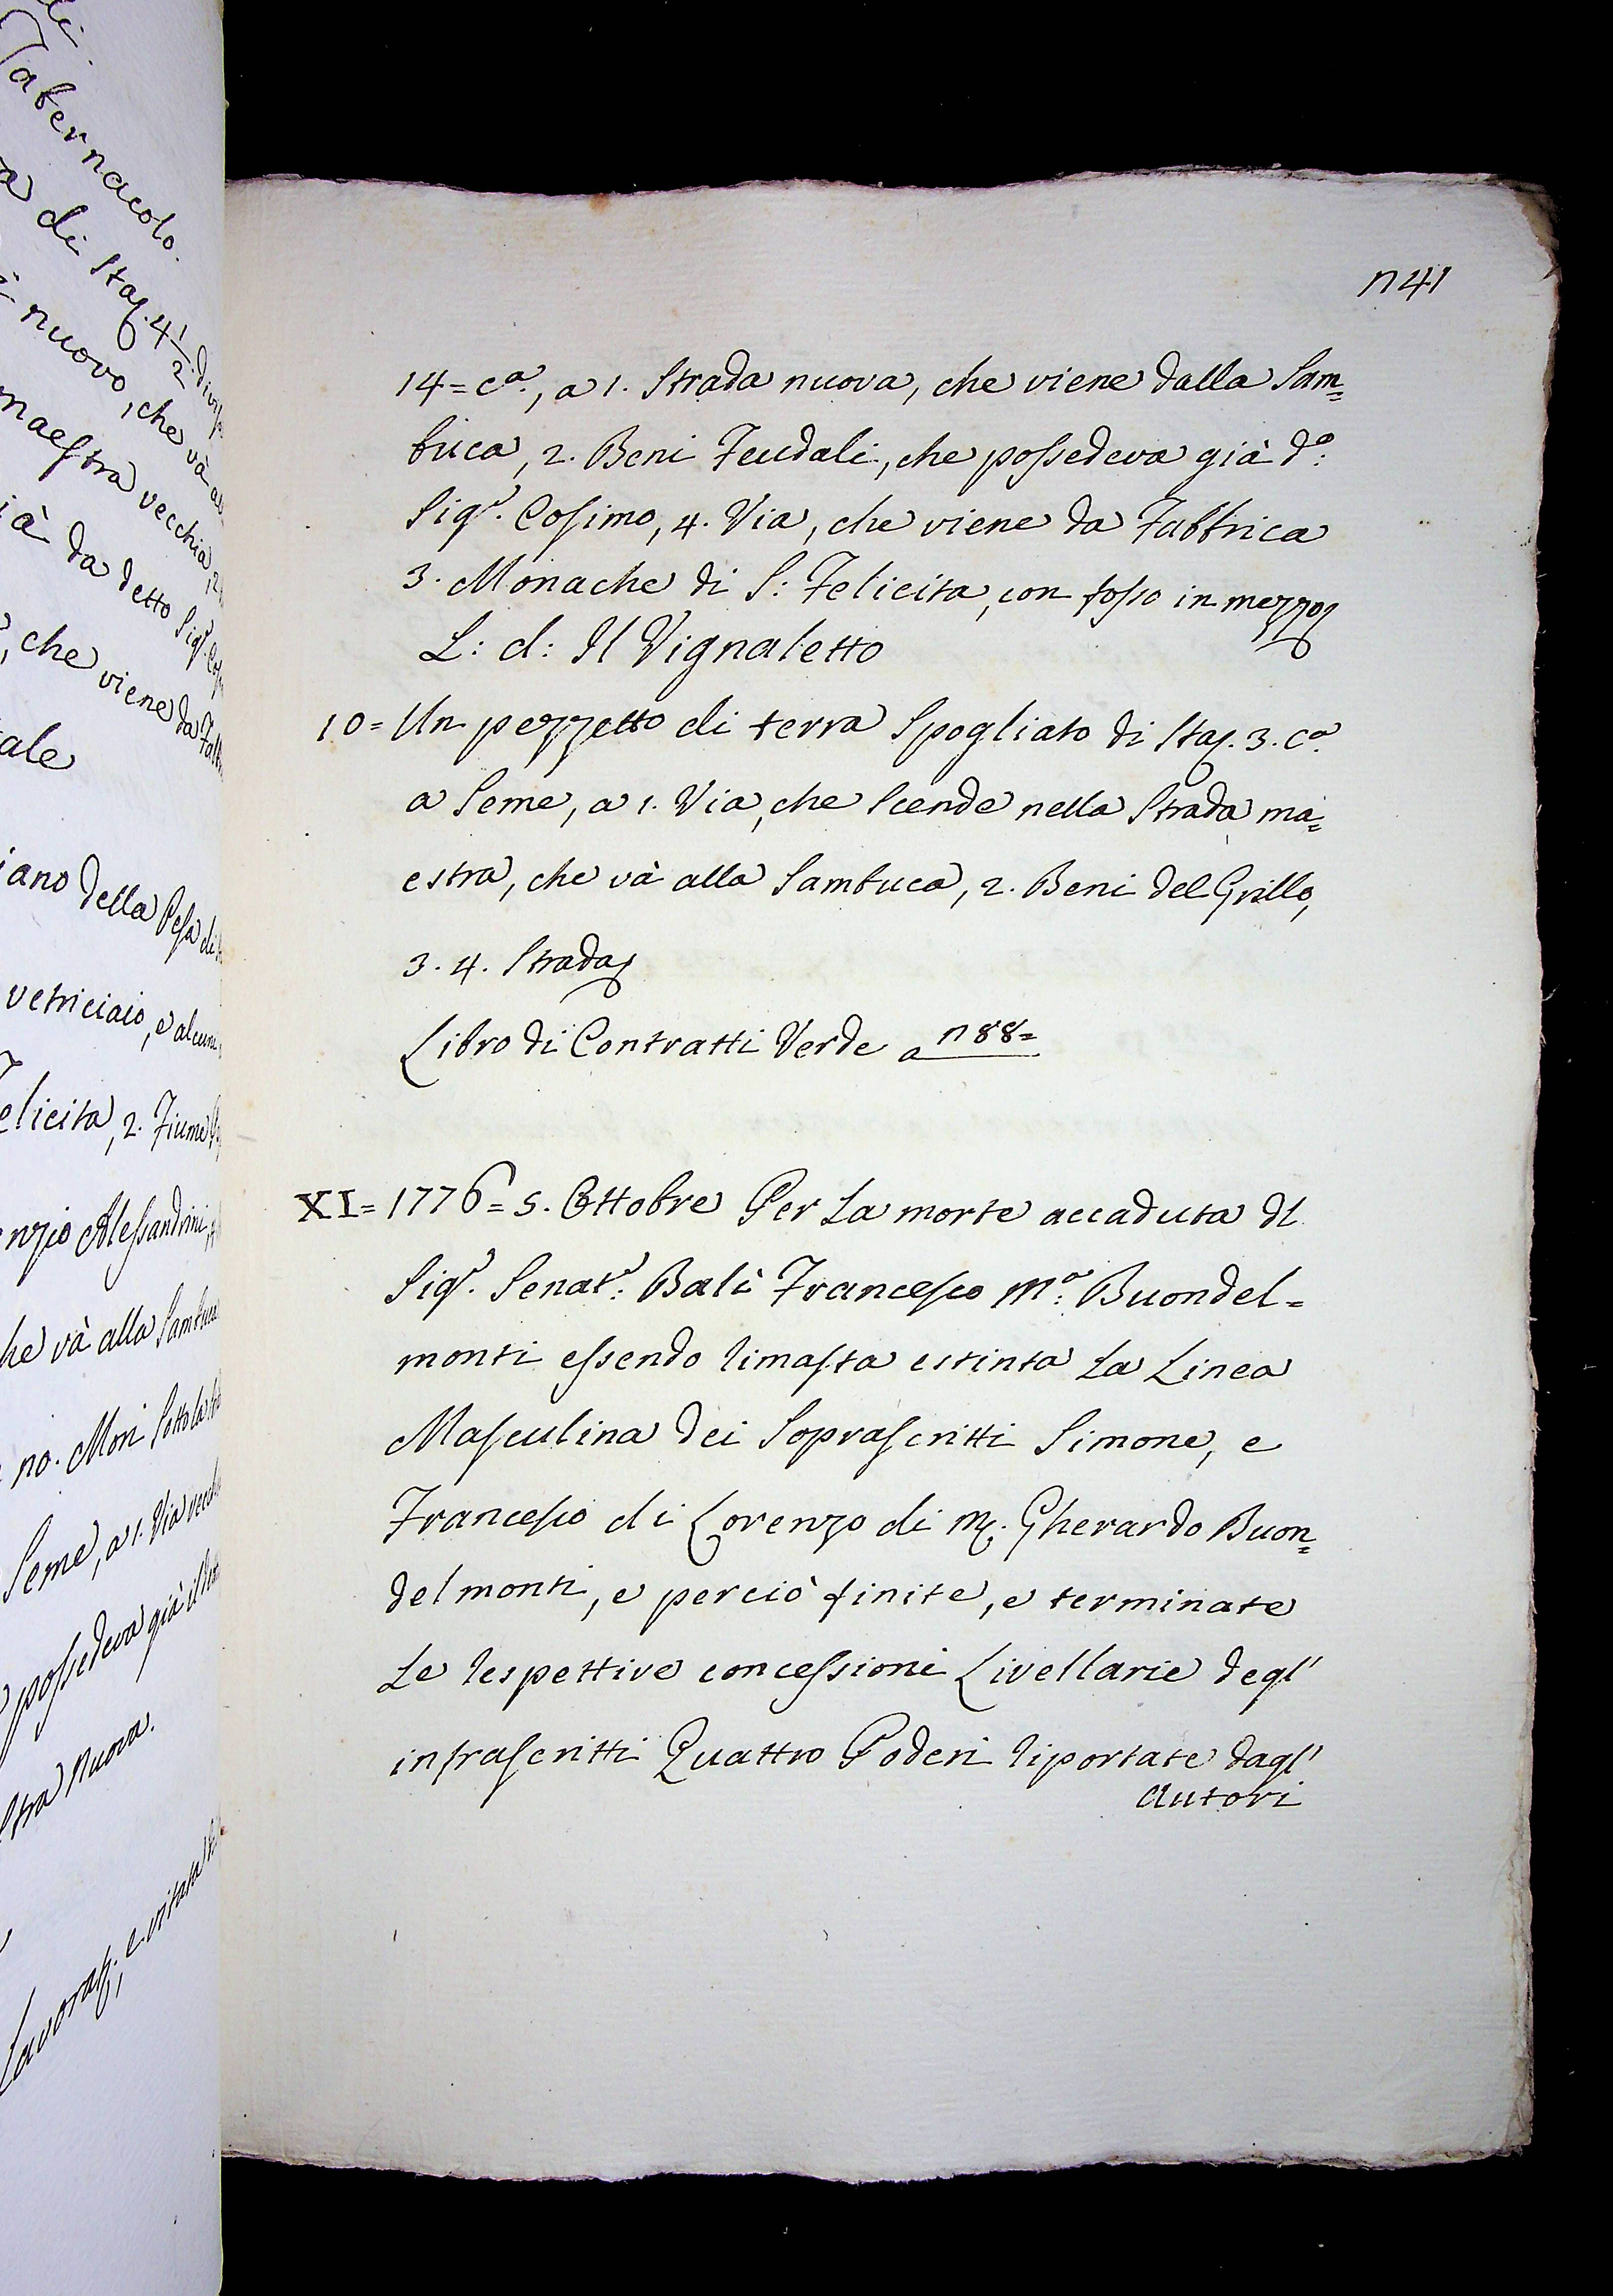 li
Tabernacolo.
a di Staj. 4 1/2
nuovo, che và
maestra vecchia
ià da detto Sigr.
che viene da
ale
iano della Pesa di
vetriciaio, e alcun
elicita, 2. Fiume
enzio Alessandrini
he và alla Sambuca
no. Mori
Seme, a 1. Via
possedeva già il
stra Nuova.
Lavorat., e vitata
n 41
14 = ca., a 1. Strada nuova, che viene dalla Sam=
buca, 2. Beni Feudali, che possedeva già do:
Sigr. Cosimo, 4. Via, che viene da Fabbrica
3. Monache di S: Felicita, con fosso in mezzo
L: d: Il Vignaletto
10 = Un pezzetto di terra Spogliato di Staj. 3. ca.
a Seme, a 1. Via, che Scende nella Strada ma=
estra, che và alla Sambuca, 2. Beni del Grillo,
3. 4. Strada
Libro di Contratti Verde a n 88 =
XI = 1776 = 5. Ottobre Per La morte accaduta dl
Sigr. Senatr: Balì Francesco Ma: Buondel=
monti essendo rimasta estinta La Linea
Masculina dei Soprascritti Simone, e
Francesco di Lorenzo di M. Gherardo Buon=
delmonti, e perciò finite, e terminate
Le respettive concessioni Livellarie degl'
infrascritti Quattro Poderi riportate dagl'
Autori